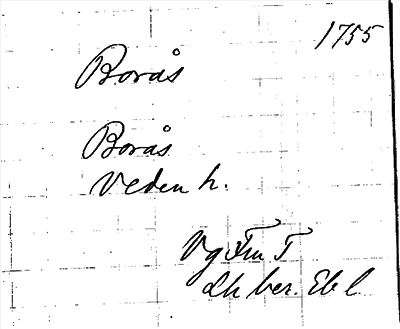 1755
Borås
Borås
Veden h.
Vg Fru T
Lh ber. Ebl